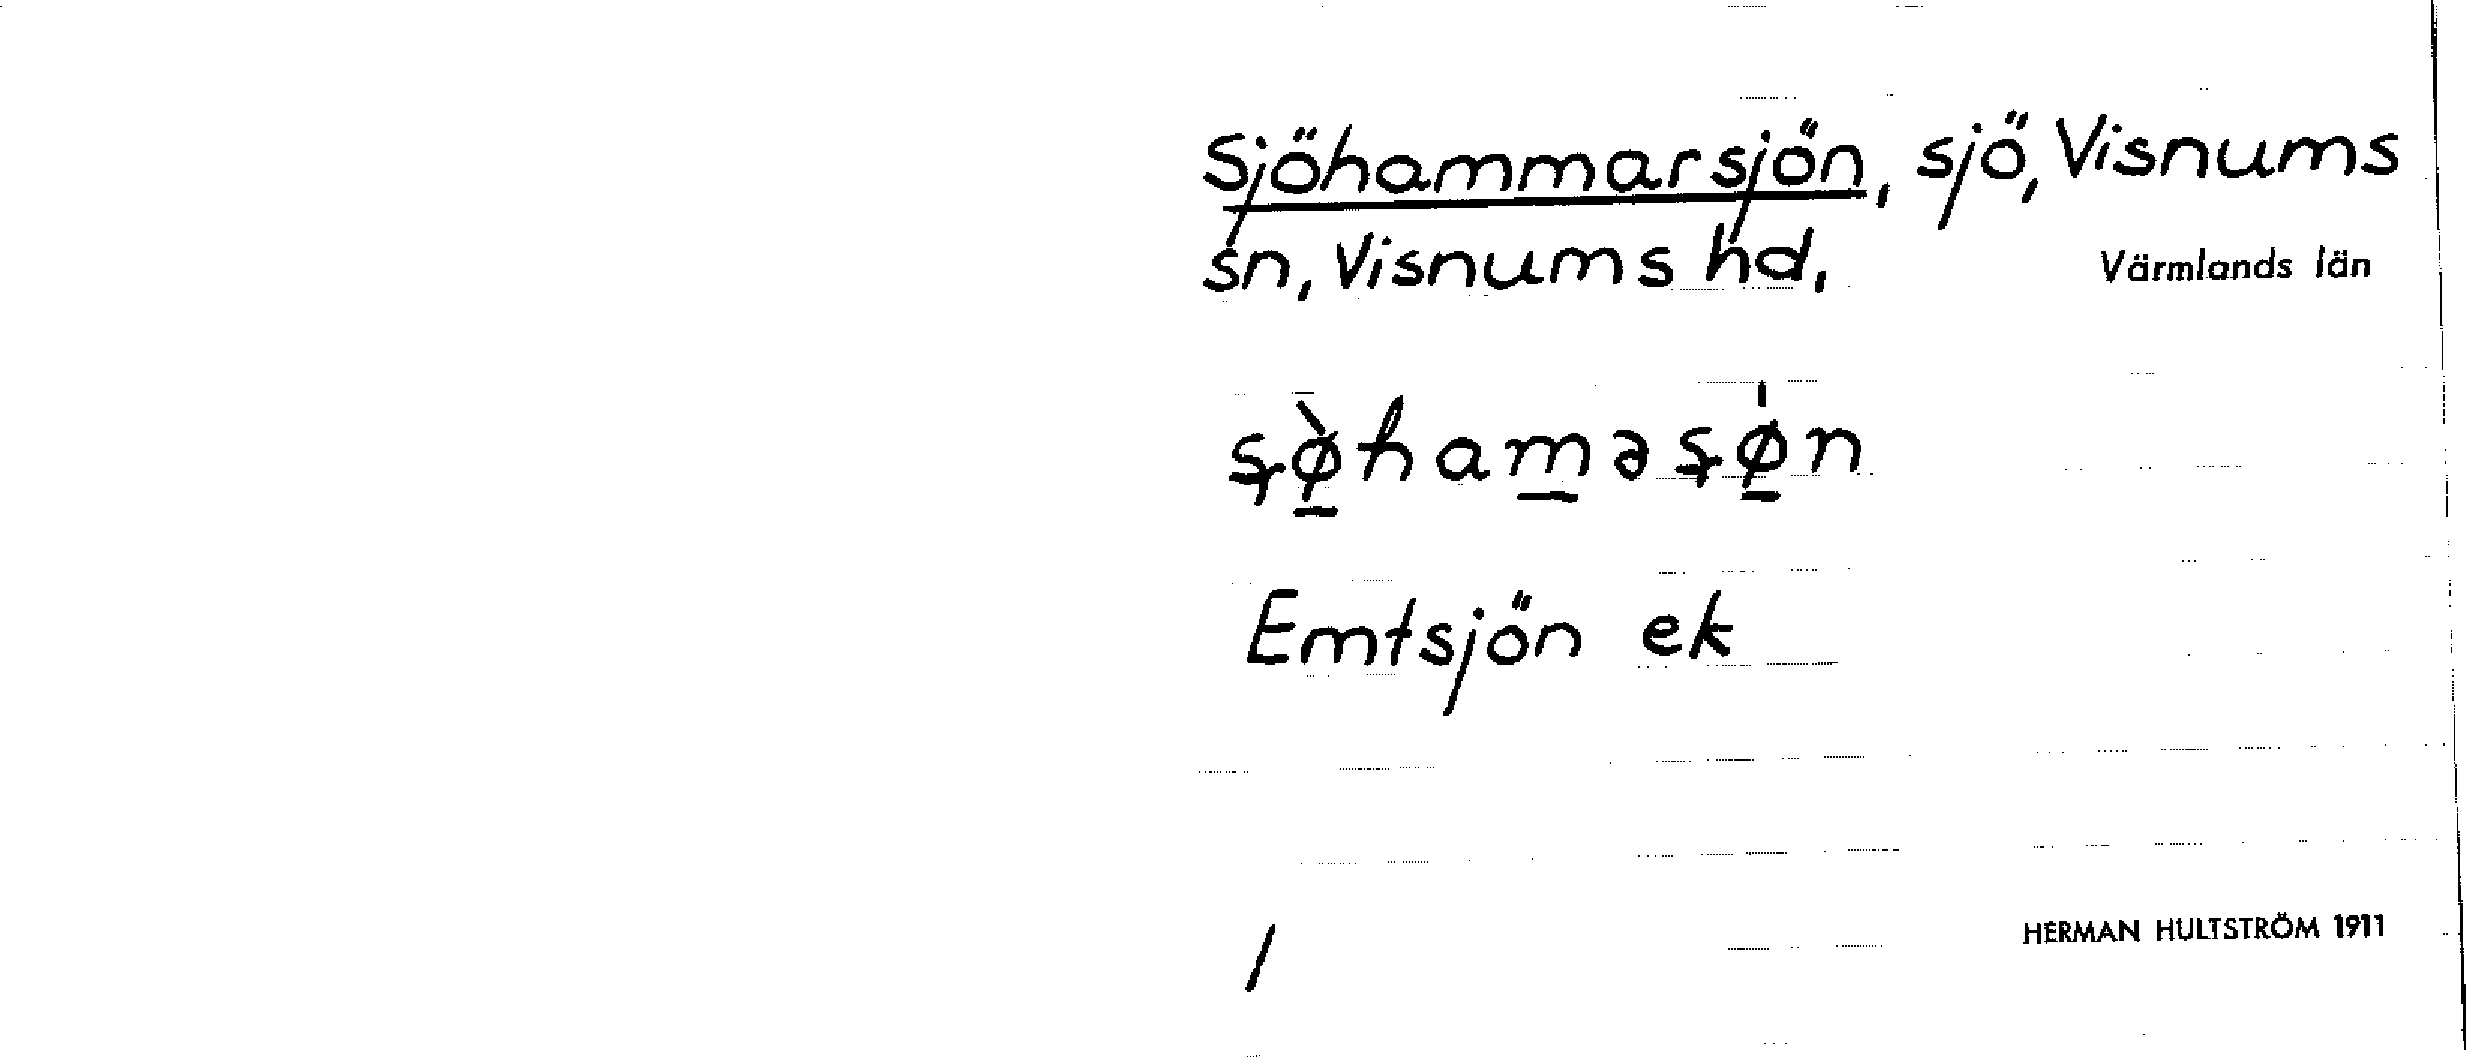 Sjöhammarsjön, sjö, Visnums
sn, Visnums hd,
Värmlands län
ʂø̱̀ham̱əʂǿ̱n
Emtsjön ek
/
HERMAN HULTSTRÖM 1911